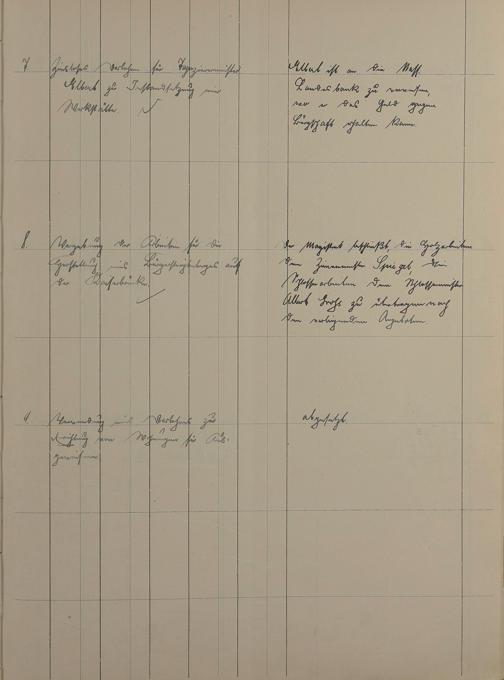 7. Zinsloses Darlehen für Tapeziermeister
Albert zu Instandsetzung einer
Werkstätte.
Albert ist an die Nass.
Landesbank zu verweisen,
wo er das Geld gegen
Bürgschaft erhalten kann.
8. Vergebung der Arbeiten für die
Herstellung eines Bürgersteigbelages auf
der Bachebrücke.
Der Magistrat beschließt, die Holzarbeiten
dem Zimmermeister Spriegel, die
Schlosserarbeiten dem Schlossermeister
Albert Groß zu übertragen nach
den vorliegenden Angeboten.
9. Verwendung eines Darlehens zur
von Wohnungen für
abgesetzt.